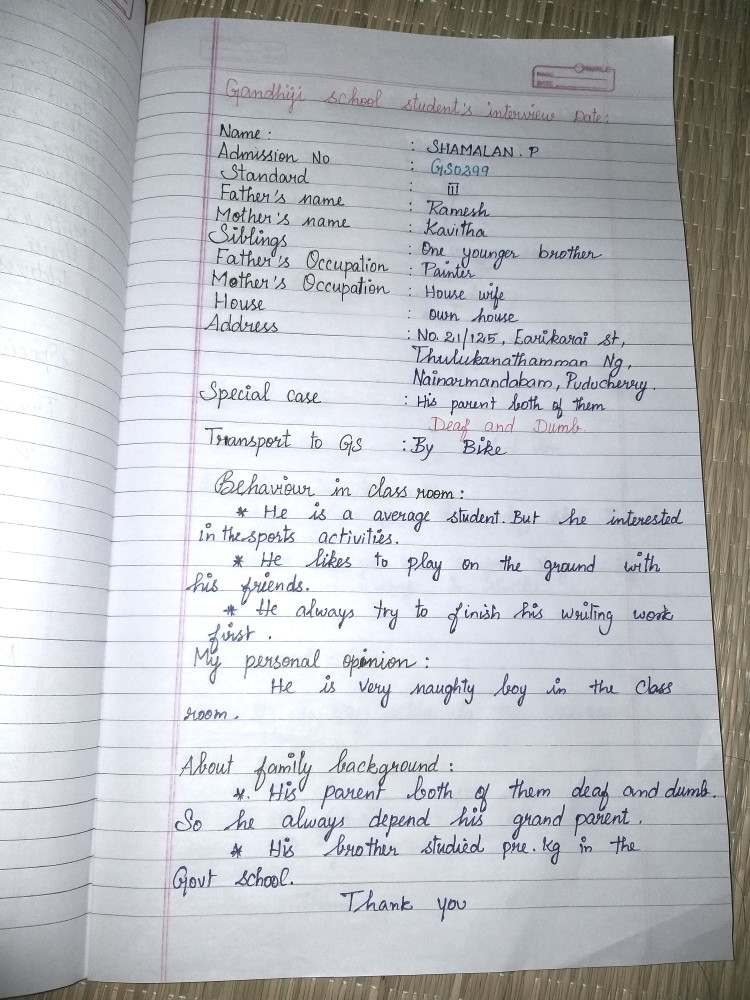 Gandhiji school student's interview Date:
Name : : SHAMALAN. P
Admission No : GS0299
Standard : III
Father's name : Ramesh
Mother's name : Kavitha
Siblings : One younger brother
Father's Occupation : Painter
Mother's Occupation : House wife
House : own house
Address : No. 21/125, Earikarai st,
Thulukanathamman Ng,
Nainarmandabam, Puducherry.
Special case : His parent both of them
Deaf and Dumb.
Transport to GS : By Bike
Behaviour in class room :
* He is a average student. But he interested
in the sports activities.
* He likes to play on the ground with
his friends.
* He always try to finish his writing work
first.
My personal opinion :
He is very naughty boy in the class
room.
About family background :
*. His parent both of them deaf and dumb.
So he always depend his grand parent.
* His brother studied pre.kg in the
Govt school.
Thank you